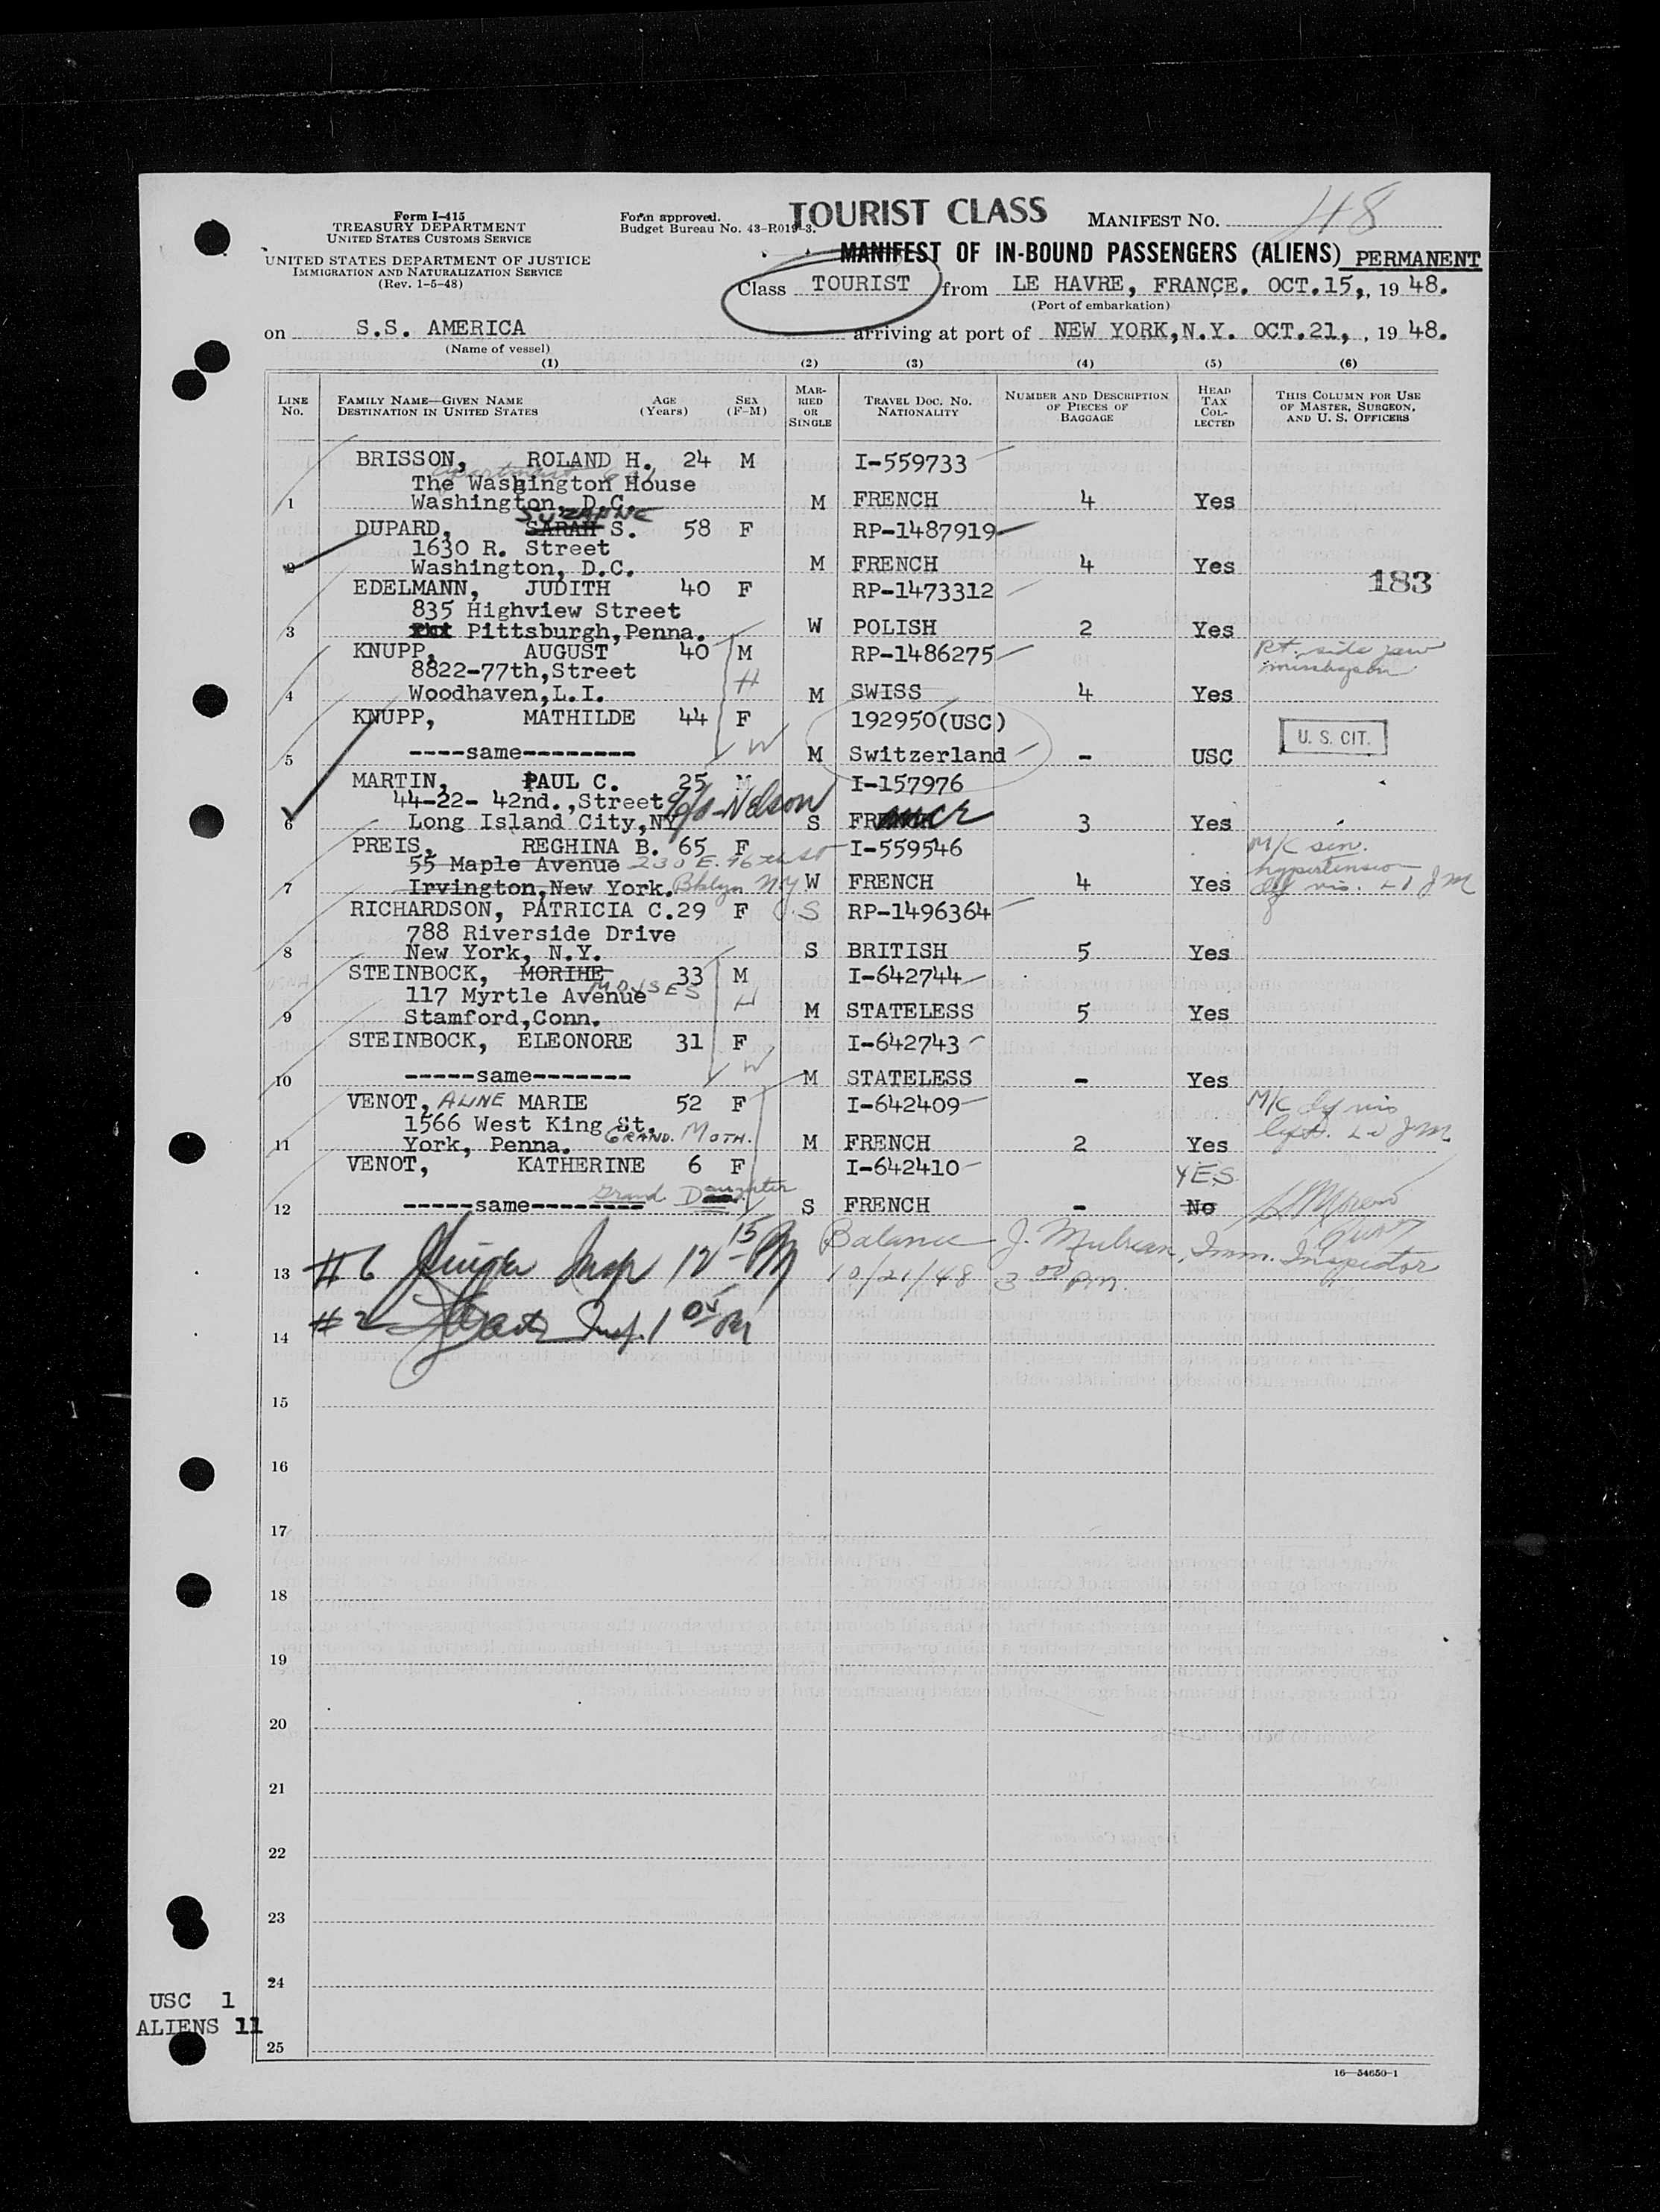 Form I-415
TREASURY DEPARTMENT
UNITED STATES CUSTOMS SERVICE
UNITED STATES DEPARTMENT OF JUSTICE
IMMIGRATION AND NATURALIZATION SERVICE
(Rev. 1-5-48)
Form approved.
Budget Bureau No. 43-R019-3.
TOURIST CLASS
MANIFEST NO. 48
MANIFEST OF IN-BOUND PASSENGERS (ALIENS) PERMANENT
Class TOURIST from LE HAVRE, FRANCE. OCT.15,, 19 48.
(Port of embarkation)
on S.S. AMERICA arriving at port of NEW YORK,N.Y. OCT.21,, 19 48.
(Name of vessel)
(1) (2) (3) (4) (5) (6)
LINE No. FAMILY NAME—GIVEN NAME DESTINATION IN UNITED STATES AGE (Years) SEX (F-M) MARRIED OR SINGLE TRAVEL DOC. NO. NATIONALITY NUMBER AND DESCRIPTION OF PIECES OF BAGGAGE HEAD TAX COLLECTED THIS COLUMN FOR USE OF MASTER, SURGEON, AND U. S. OFFICERS
BRISSON, ROLAND H. 24 M I-559733
Apartment
The Washington House
1 Washington, D.C. M FRENCH 4 Yes
SUZANNE
DUPARD, SARAH S. 58 F RP-1487919
1630 R. Street
2 Washington, D.C. M FRENCH 4 Yes
183
EDELMANN, JUDITH 40 F RP-1473312
835 Highview Street
3 Pittsburgh,Penna. W POLISH 2 Yes
KNUPP, AUGUST 40 M RP-1486275 Rt. side jaw
8822-77th,Street H
4 Woodhaven,L.I. M SWISS 4 Yes
KNUPP, MATHILDE 44 F 192950(USC)
U. S. CIT.
5 ----same-------- W M Switzerland - USC
MARTIN, PAUL C. 25 M I-157976
44-22- 42nd.,Street c/o Nelson
6 Long Island City,NY S FRance 3 Yes
PREIS, REGHINA B. 65 F I-559546 M/C sen.
55 Maple Avenue 230 E. 96th St hypertension
7 Irvington,New York. Bklyn NY W FRENCH 4 Yes
RICHARDSON, PATRICIA C.29 F RP-1496364
788 Riverside Drive
8 New York, N.Y. S BRITISH 5 Yes
STEINBOCK, MORIHE 33 M I-642744
MOYSES
117 Myrtle Avenue H
9 Stamford,Conn. M STATELESS 5 Yes
STEINBOCK, ELEONORE 31 F I-642743
10 -----same------- W M STATELESS - Yes
VENOT, ALINE MARIE 52 F I-642409 M/C
1566 West King St.
11 York, Penna. GRAND. MOTH. M FRENCH 2 Yes
VENOT, KATHERINE 6 F I-642410 YES
12 -----same--------- Grand Daughter S FRENCH - No
13 #6 Insp 12 15 PM Balance J. Mulrean, Imm. Inspector
10/21/48 3 00 PM
14 #2 Insp. 1 05 PM
15
16
17
18
19
20
21
22
23
24
25
USC 1
ALIENS 11
16—54650-1